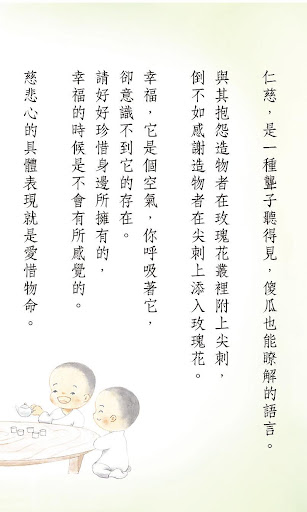 仁慈，是一種聾子聽得見，傻瓜也能瞭解的語言。
與其抱怨造物者在玫瑰花叢裡附上尖刺，
倒不如感謝造物者在尖刺上添入玫瑰花。
幸福，它是個空氣，你呼吸著它，
卻意識不到它的存在。
請好好珍惜身邊所擁有的，
幸福的時候是不會有所感覺的。
慈悲心的具體表現就是愛惜物命。